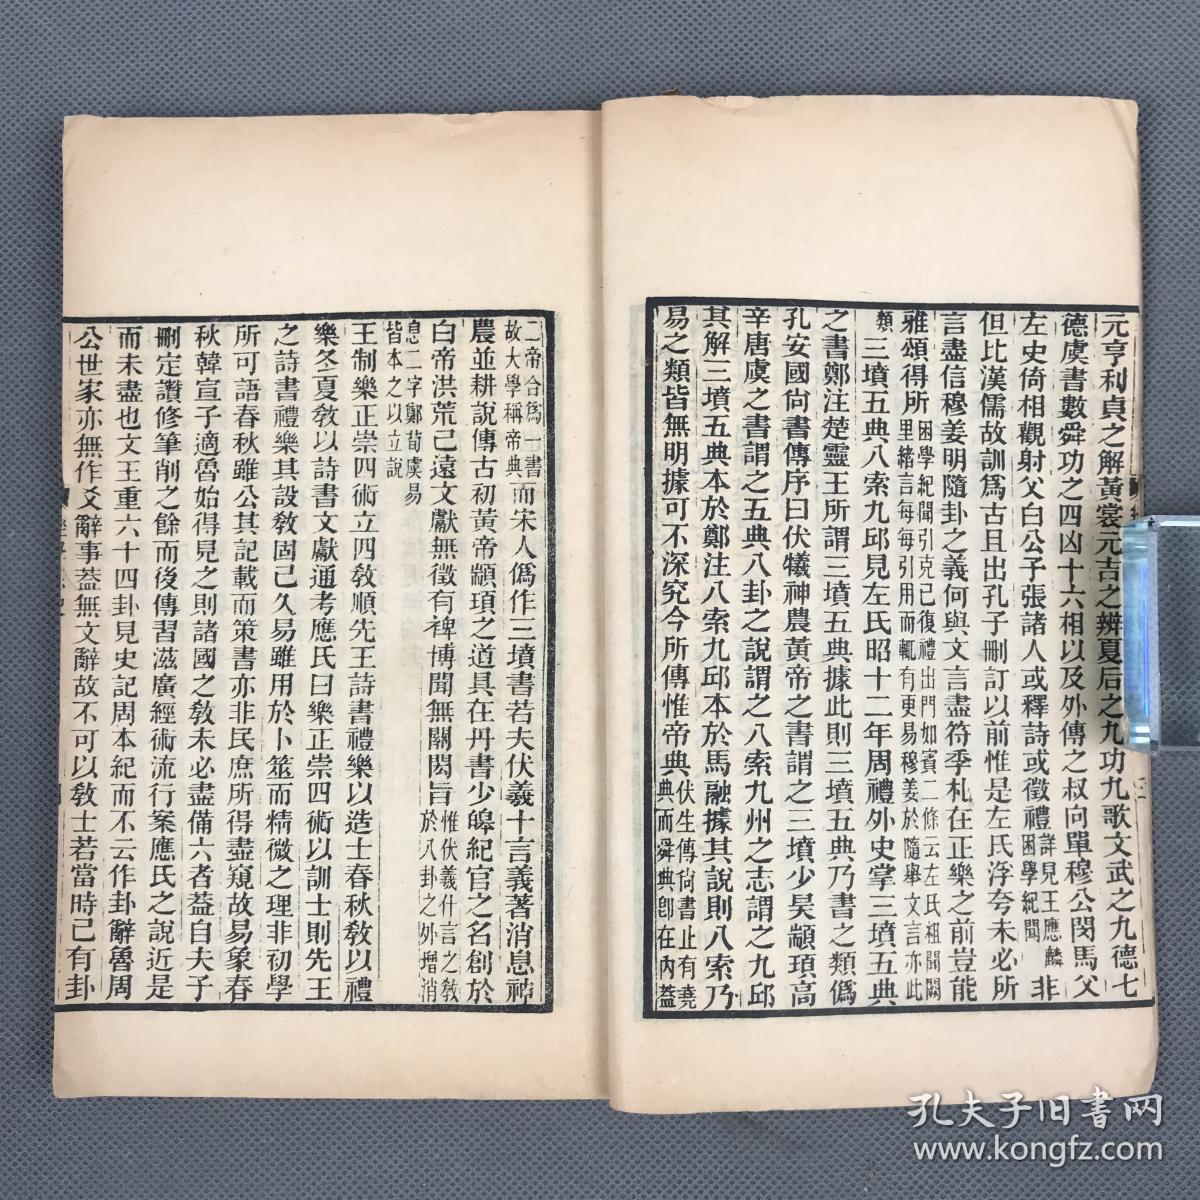 元亨利貞之解黃裳元吉之辨夏后之九功九歌文武之九德七
德虞書數舜功之四凶十六相以及外傳之叔向單穆公閔馬父
左史倚相觀射父白公子張諸人或釋詩或徵禮詳見王應麟困學紀聞非
但比漢儒故訓爲古且出孔子刪訂以前惟是左氏浮夸未必所
言盡信穆姜明隨卦之義何與文言盡符季札在正樂之前豈能
雅頌得所困學紀聞引克己復禮出門如賓二條云左氏粗聞闕里緒言每每引用而輒有更易穆姜於隨舉文言亦此
類三墳五典八索九邱見左氏昭十二年周禮外史掌三墳五典
之書鄭注楚靈王所謂三墳五典據此則三墳五典乃書之類僞
孔安國尙書傳序曰伏犧神農黃帝之書謂之三墳少昊顓頊高
辛唐虞之書謂之五典八卦之說謂之八索九州之志謂之九邱
其解三墳五典本於鄭注八索九邱本於馬融據其說則八索乃
易之類皆無明據可不深究今所傳惟帝典伏生傳尙書止有堯典而舜典卽在內蓋
二帝合爲一書故大學稱帝典而宋人僞作三墳書若夫伏羲十言義著消息神
農並耕說傳古初黃帝顓頊之道具在丹書少皞紀官之名創於
白帝洪荒已遠文獻無徵有裨博聞無關閎旨惟伏羲什言之敎於八卦之外增消
息二字鄭荀虞易皆本之以立說
王制樂正崇四術立四敎順先王詩書禮樂以造士春秋敎以禮
樂冬夏敎以詩書文獻通考應氏曰樂正崇四術以訓士則先王
之詩書禮樂其設敎固已久易雖用於卜筮而精微之理非初學
所可語春秋雖公其記載而策書亦非民庶所得盡窺故易象春
秋韓宣子適魯始得見之則諸國之敎未必盡備六者蓋自夫子
刪定讚修筆削之餘而後傳習滋廣經術流行案應氏之說近是
而未盡也文王重六十四卦見史記周本紀而不云作卦辭魯周
公世家亦無作爻辭事蓋無文辭故不可以敎士若當時已有卦
孔夫子旧書网
www.kongfz.com